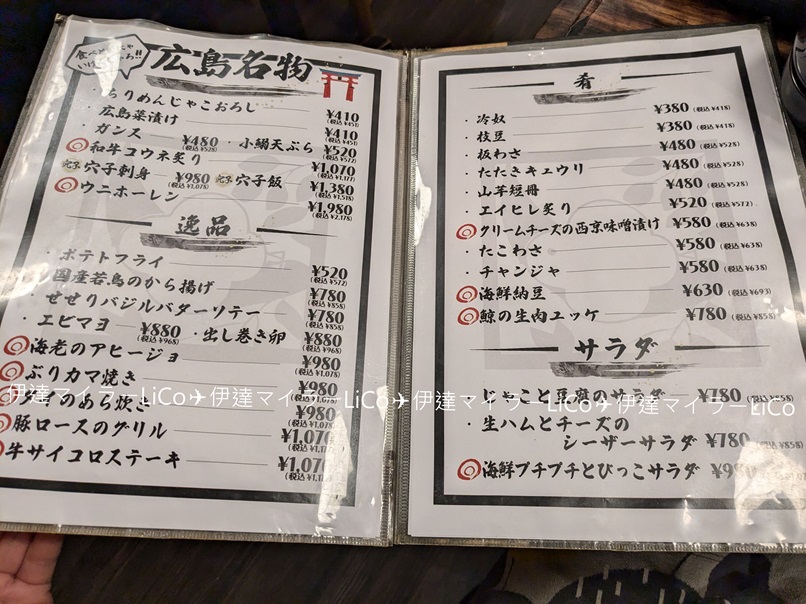 広島名物
ちりめんじゃこおろし ¥410 (税込 ¥451)
広島菜漬け ¥410 (税込 ¥451)
・ガンス ¥480 (税込 ¥528) ・小鰯天ぷら ¥520 (税込 ¥572)
和牛コウネ炙り ¥1,070 (税込 ¥1,177)
穴子刺身 ¥980 (税込 ¥1,078) 穴子飯 ¥1,380 (税込 ¥1,518)
ウニホーレン ¥1,980 (税込 ¥2,178)
逸品
・ポテトフライ ¥520 (税込 ¥572)
国産若鳥のから揚げ ¥780 (税込 ¥858)
・せせりバジルバターソテー ¥780 (税込 ¥858)
・エビマヨ ¥880 (税込 ¥968) ・出し巻き卵 ¥880 (税込 ¥968)
海老のアヒージョ ¥980
ぶりカマ焼き ¥980
のあら炊き ¥980 (税込 ¥1,078)
豚ロースのグリル ¥1,070
牛サイコロステーキ ¥1,070
肴
・冷奴 ¥380 (税込 ¥418)
・枝豆 ¥380 (税込 ¥418)
・板わさ ¥480 (税込 ¥528)
・たたきキュウリ ¥480 (税込 ¥528)
・山芋短冊 ¥480 (税込 ¥528)
・エイヒレ炙り ¥520 (税込 ¥572)
クリームチーズの西京味噌漬け ¥580 (税込 ¥638)
・たこわさ ¥580 (税込 ¥638)
・チャンジャ ¥580 (税込 ¥638)
海鮮納豆 ¥630 (税込 ¥693)
鯨の生肉ユッケ ¥780 (税込 ¥858)
サラダ
・じゃこと豆腐のサラダ ¥780 (税込 ¥858)
・生ハムとチーズの
シーザーサラダ ¥780 (税込 ¥858)
海鮮プチプチとびっこサラダ
伊達マイラーLiCo✈伊達マイラーLiCo✈伊達マイラーLiCo✈伊達マイラーLiCo